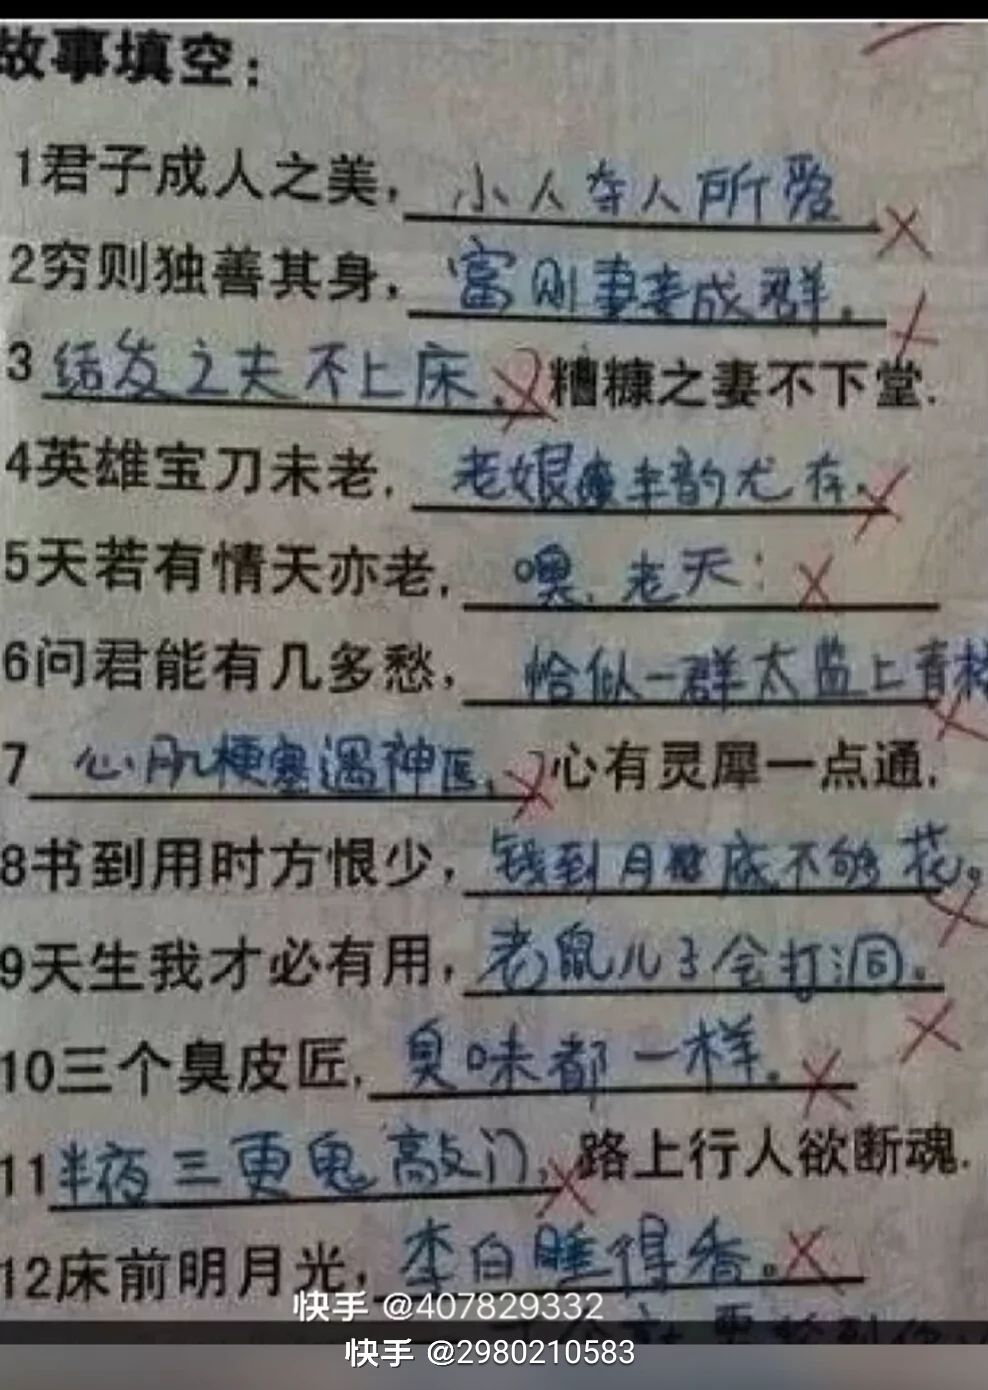 故事填空:
1君子成人之美,小人夺人所爱
2穷则独善其身,富则妻妾成群。
3结发之夫不上床.糟糠之妻不下堂.
4英雄宝刀未老,老娘丰韵尤存.
5天若有情天亦老,噢,老天!
6问君能有几多愁,恰似一群太监上青楼
7心肌梗塞遇神医,心有灵犀一点通.
8书到用时方恨少,钱到月底不够花。
9天生我才必有用,老鼠儿子会打洞。
10三个臭皮匠,臭味都一样。
11半夜三更鬼敲门,路上行人欲断魂.
12床前明月光,李白睡得香。
快手 @407829332
快手 @2980210583